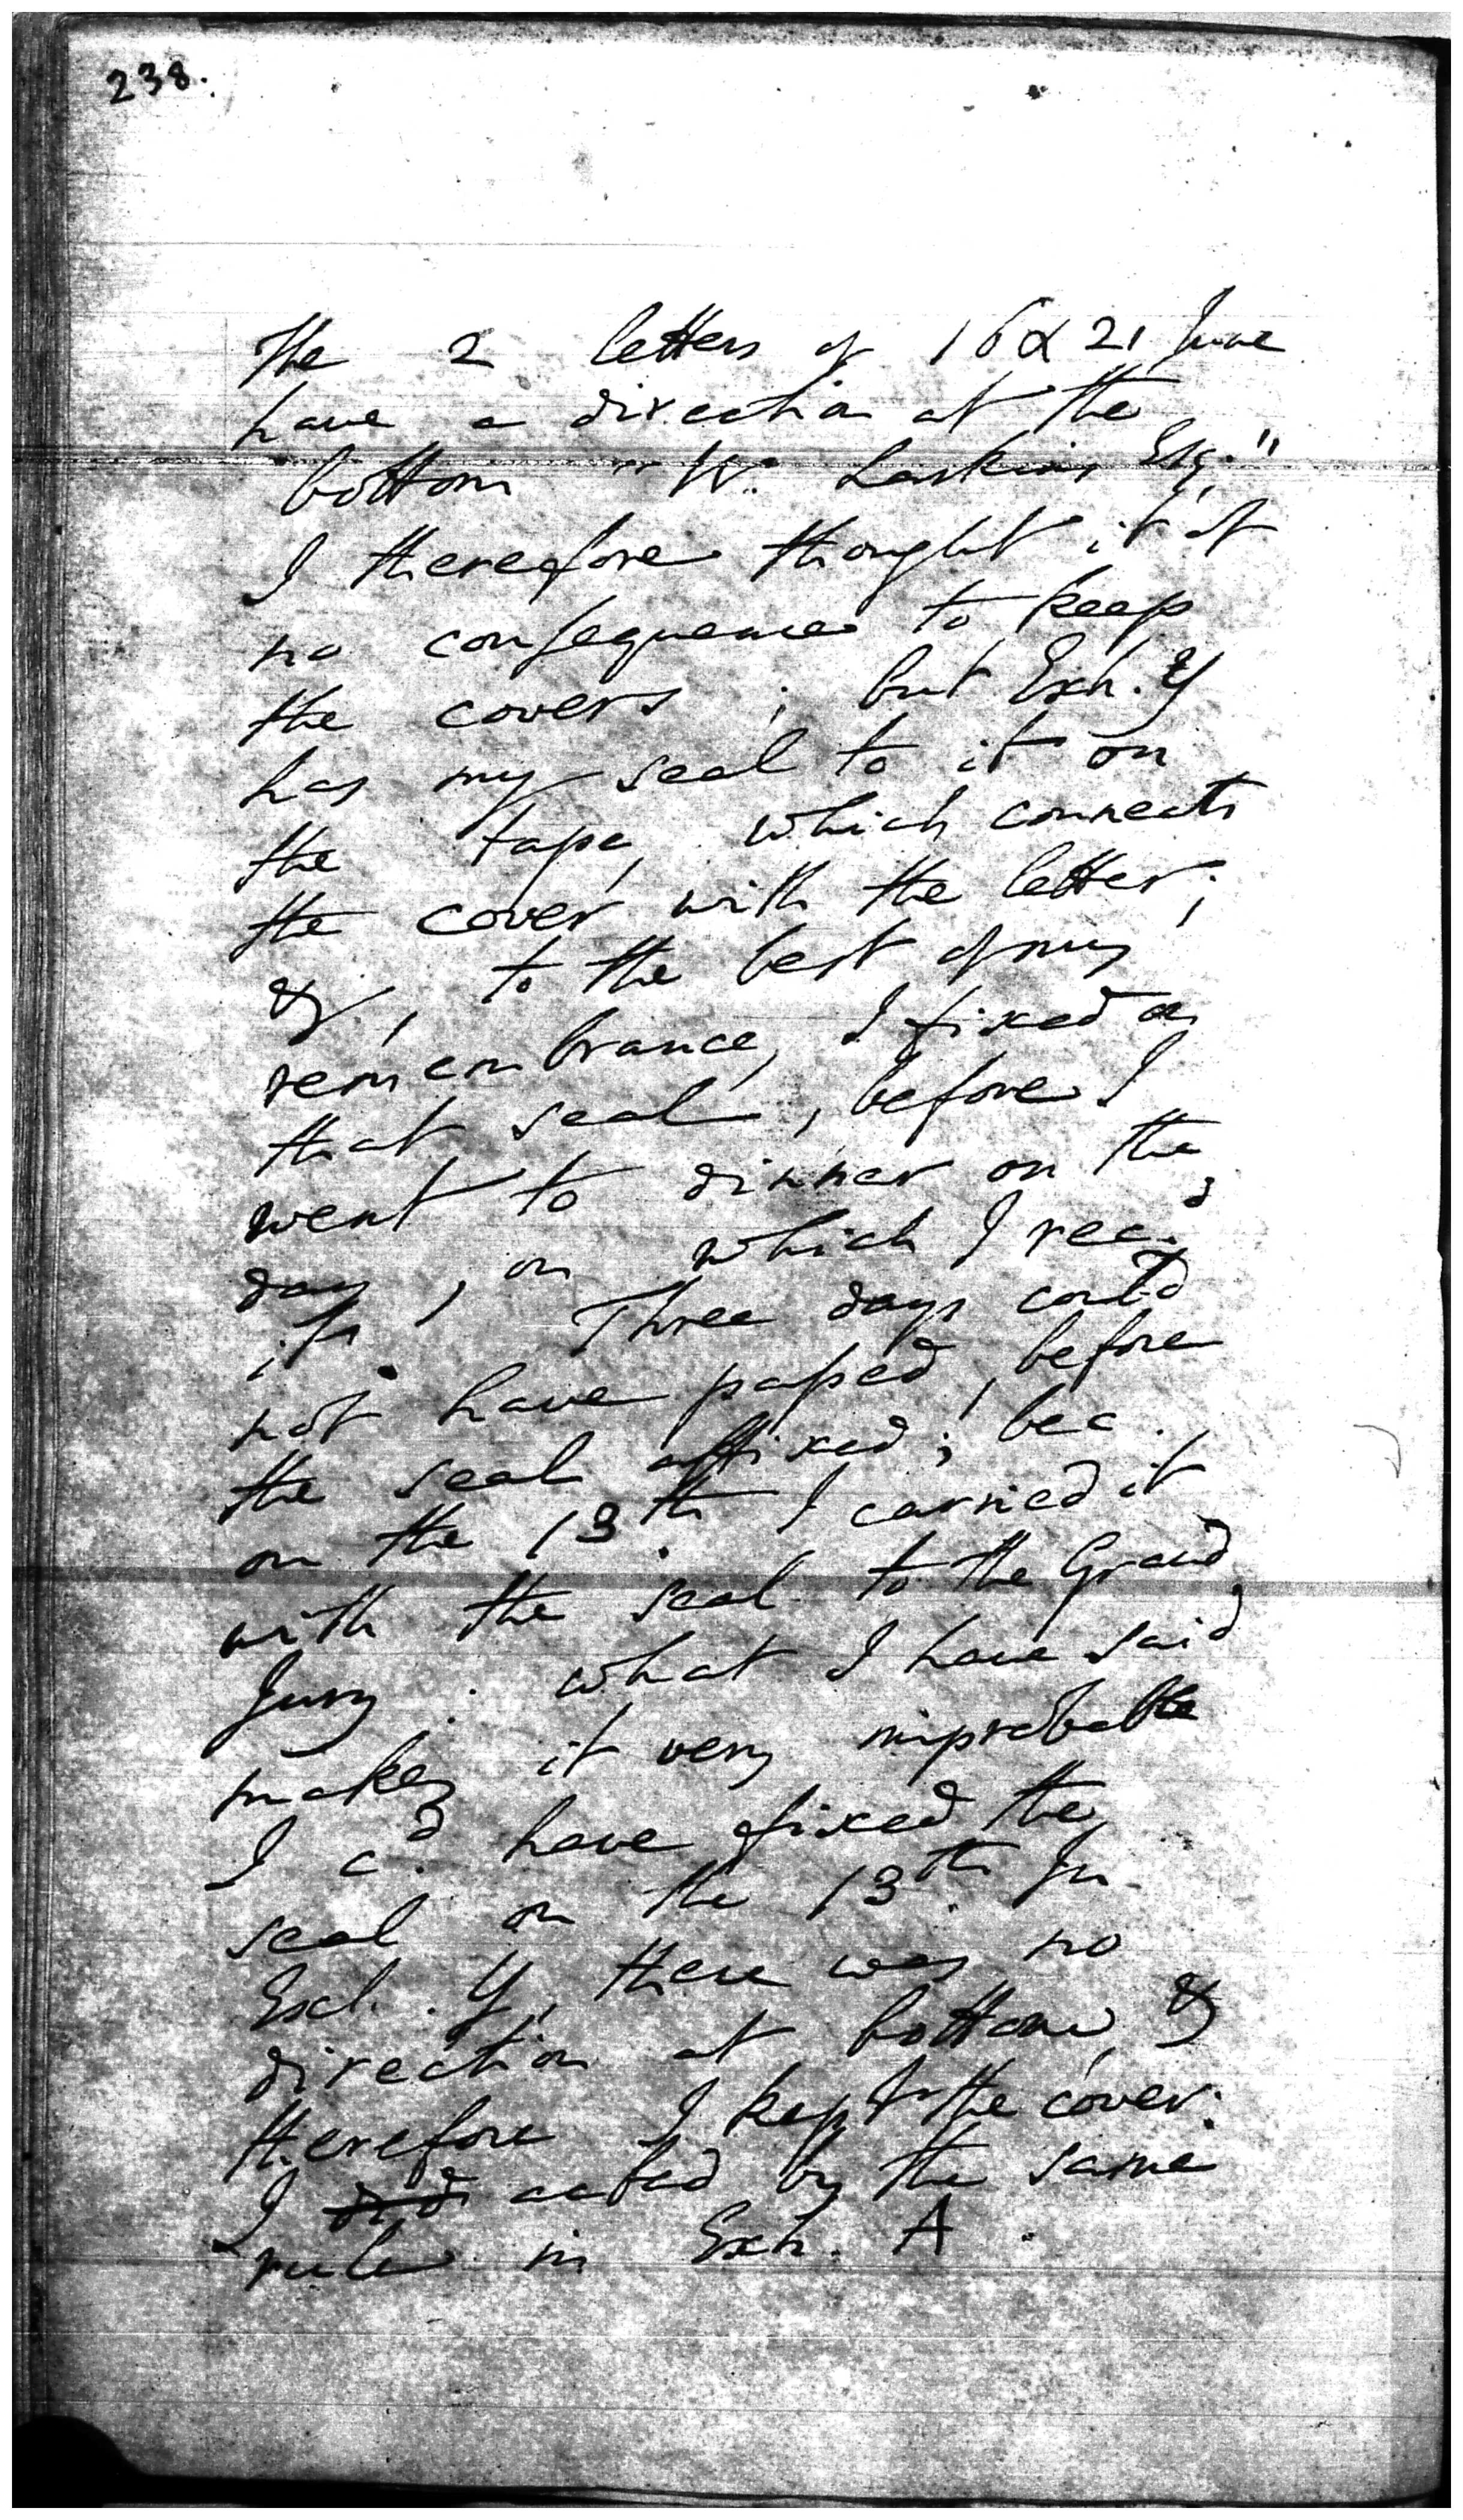 238.
The 2 letters of 16 & 21 June
have a direction at the
bottom "W. Larkins Esq."
I therefore thought it of
no consequence to keep
the covers ; but Exh. Y
has my seal to it on
the tape, which connects
the cover with the letter;
&, to the best of my
remembrance, I fixed
that seal, before I
went to dinner on the
day, on which I rec.d
it. Three days could
not have passed, before
the seal affixed; bec.
on the 13.th I carried it
with the seal to the Grand
Jury. What I have said
makes it very improbable
I c.d have fixed the
seal on the 13.th In
Exh. Y, there was no
direction at bottom, &
therefore I kept the cover.
I did acted by the same
rule in Exh. A.